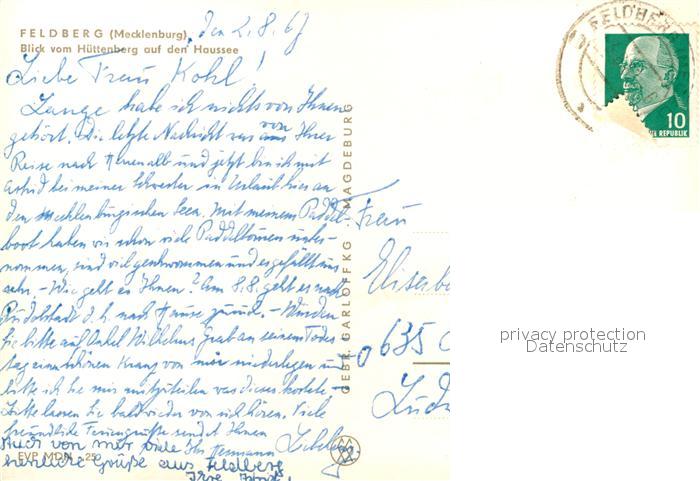 FELDBERG (Mecklenburg), den 2.8.67
Blick vom Hüttenberg auf den Haussee
Liebe Frau Kohl!
Lange habe ich nichts von Ihnen
gehört. Die letzte Nachricht war von Ihrer
Reise nach und jetzt bin ich mit
Astrid bei meiner Schwester in Urlaub hier an
den Mecklenburgischen Seen. Mit meinem Paddel-
boot haben wir schon viele Paddeltouren unter-
nommen, sind viel geschwommen und es gefällt uns
sehr. - Wie geht es Ihnen? Am 8.8. geht es nach
Rudolstadt d.h. nach Hause zurück. - Würden
Sie bitte auf Onkel Wilhelms Grab an seinem Todes
tag einen schönen Kranz von mir niederlegen und
bitte ich Sie mir mitzuteilen was dieser kostete -
Bitte lassen Sie bald wieder von sich hören. Viele
freundliche Feriengrüße sendet Ihnen
Ihr Hermann
Auch von mir viele
herzliche Grüße aus Feldberg
Ihre
EVP MDN -.25
GEBR. GARLOFF KG · MAGDEBURG
Frau
0635
FELDBERG
10
REPUBLIK
privacy protection
Datenschutz